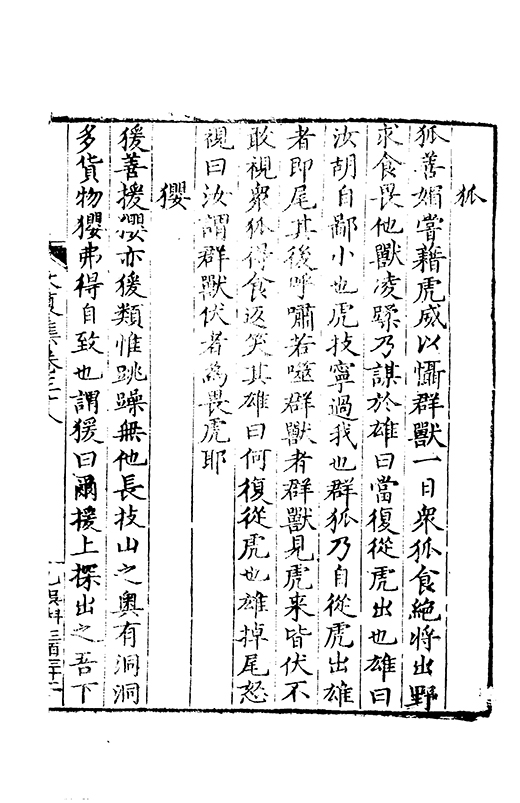 狐
狐善媚嘗藉虎威以懾群獸一日衆狐食絶將出野
求食畏他獸凌蹂乃謀於雄曰當復從虎出也雄曰
汝胡自鄙小也虎技寧過我也群狐乃自從虎出雄
者即尾其後呼嘯若噬群獸者群獸見虎来皆伏不
敢視衆狐得食返笑其雄曰何復從虎也雄掉尾怒
視曰汝謂群獸伏者為畏虎耶
玃
猨善援玃亦猨類惟跳躁無他長技山之奥有洞洞
多貨物玃弗得自致也謂猨曰爾援上探出之吾下
集卷三十八